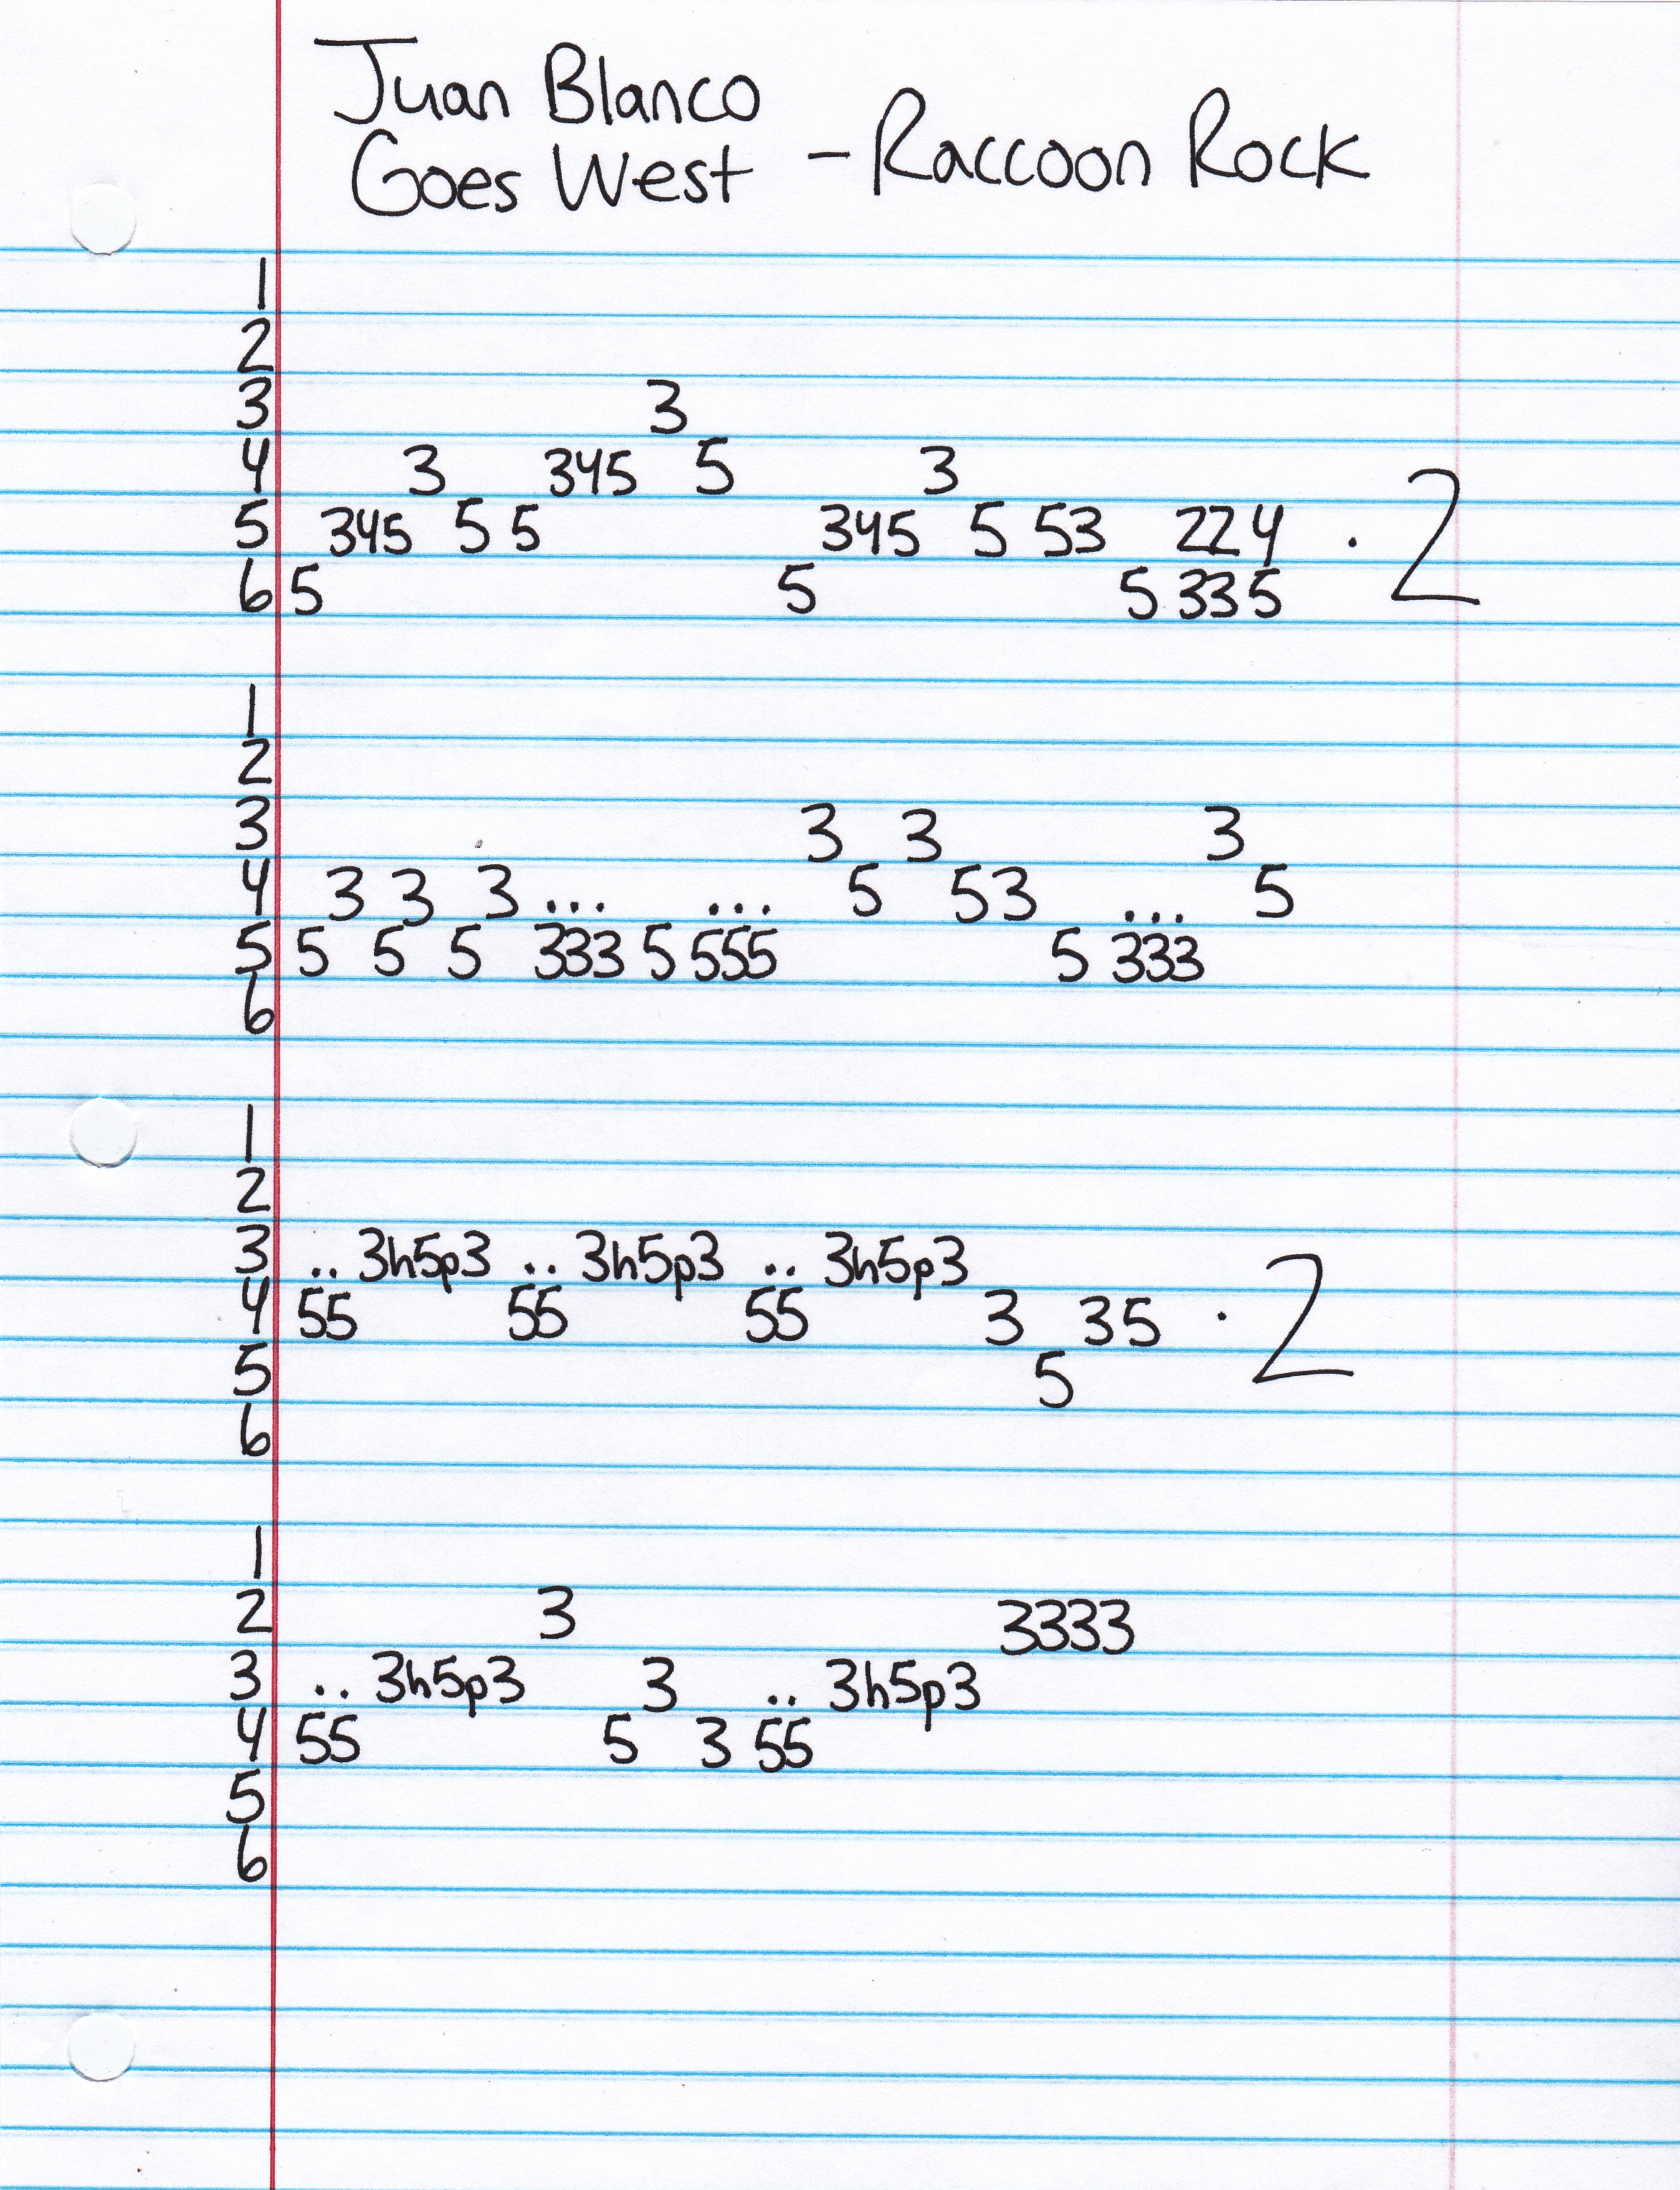 Juan Blanco
Goes West - Raccoon Rock
1
2
3 3
4 3 345 5 3
5 345 5 5 345 5 53 224 · 2
6 5 5 5 335
1
2
3 3 3 3
4 3 3 3 ... ... 5 53 ... 5
5 5 5 5 333 5 555 5 333
6
1
2
3 .. 3h5p3 .. 3h5p3 .. 3h5p3
4 55 55 55 3 35 · 2
5 5
6
1
2 3 3333
3 .. 3h5p3 3 .. 3h5p3
4 55 5 3 55
5
6